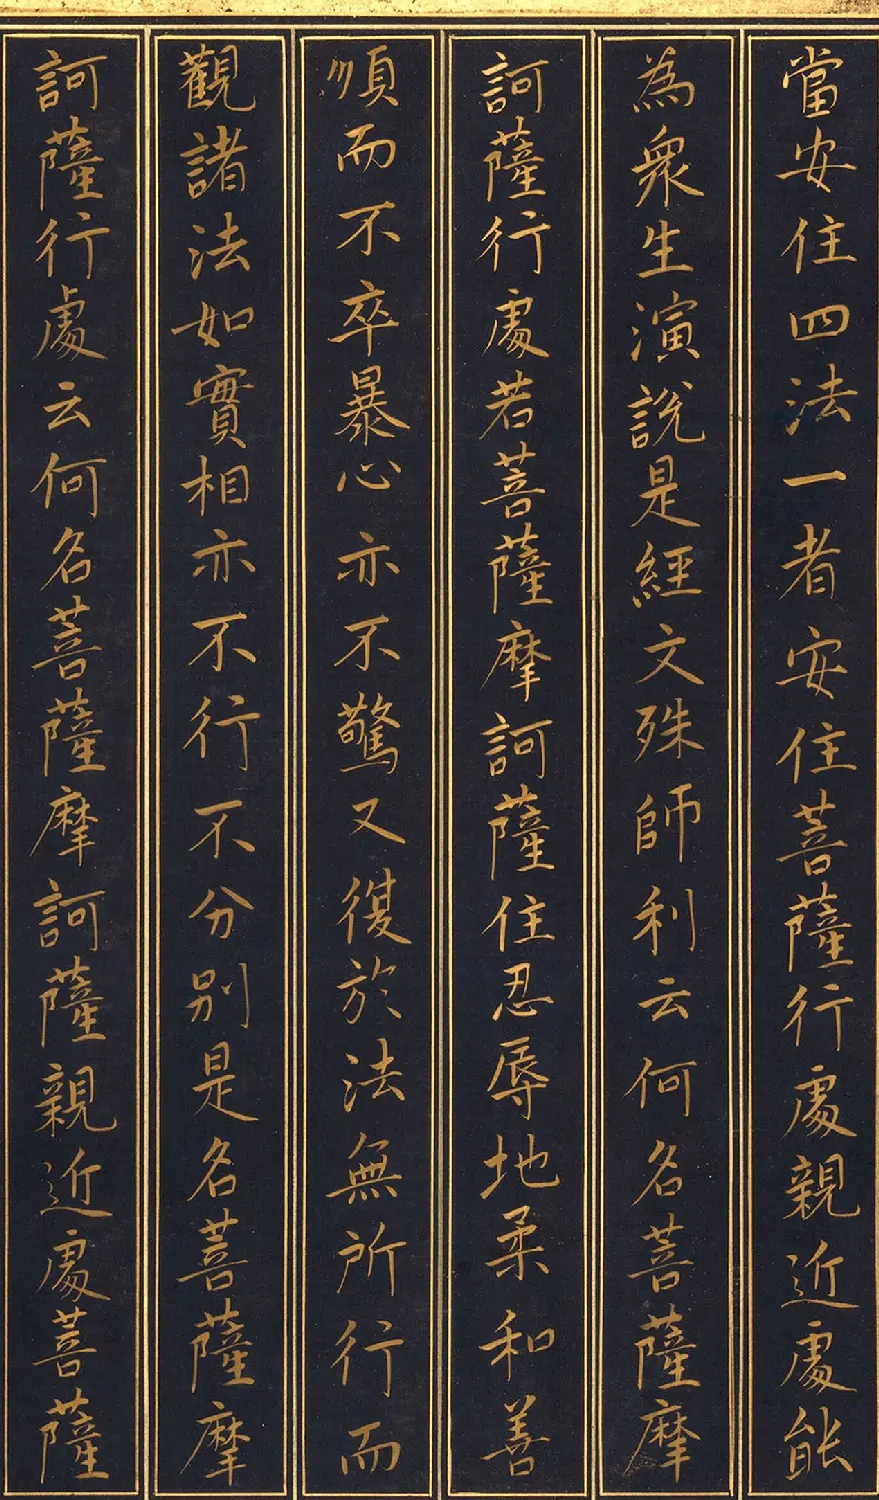 當安住四法一者安住菩薩行處親近處能
為衆生演說是經文殊師利云何名菩薩摩
訶薩行處若菩薩摩訶薩住忍辱地柔和善
順而不卒暴心亦不驚又復於法無所行而
觀諸法如實相亦不行不分別是名菩薩摩
訶薩行處云何名菩薩摩訶薩親近處菩薩